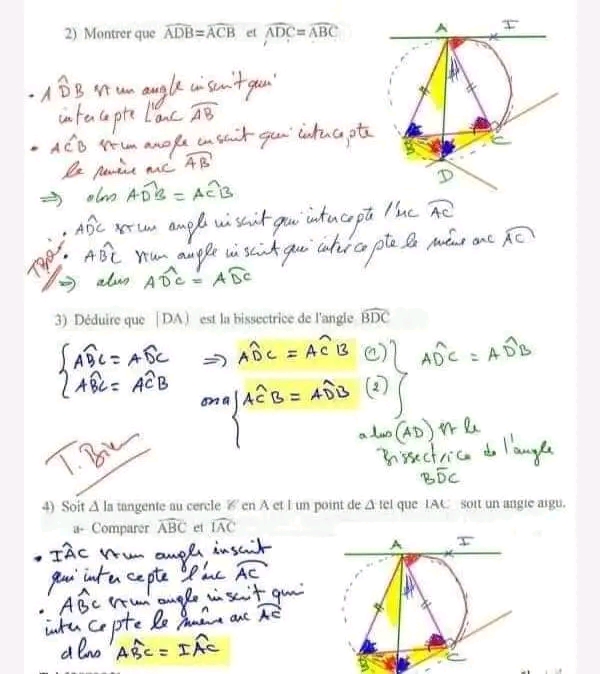 2) Montrer que ADB=ACB et ADC=ABC
A I
• AD̂B est un angle inscrit qui
intercepte l'arc AB
• AĈB est un angle inscrit qui intercepte
le même arc AB
⇒ alors AD̂B = AĈB
B C
D
• AD̂C est un angle inscrit qui intercepte l'arc AC
• AB̂C est un angle inscrit qui intercepte le même arc AC
⇒ alors AD̂C = AB̂C
3) Déduire que [DA) est la bissectrice de l'angle BDC
{ AB̂C = AD̂C ⇒ AD̂C = AĈB (1) } AD̂C = AD̂B
{ AB̂C = AĈB
on a { AĈB = AD̂B (2)
alors (AD) est la
Bissectrice de l'angle
BD̂C
T. Bien
4) Soit Δ la tangente au cercle 𝒞 en A et I un point de Δ tel que IAC soit un angle aigu.
a- Comparer ABC et IAC
• IÂC est un angle inscrit
qui intercepte l'arc AC
• AB̂C est un angle inscrit qui
intercepte le même arc AC
alors AB̂C = IÂC
A I
B C